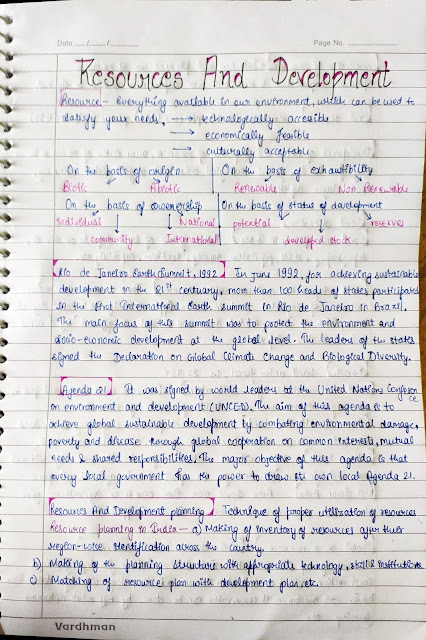 Date ___/___/___ Page No.
Resources And Development
Resource- Everything available in our environment, which can be used to
satisfy your needs, → technologically accesible
→ economically feasible
→ culturally acceptable
On the basis of origin On the basis of exhaustibility
Biotic Abiotic Renewable Non Renewable
On the basis of owenership On the basis of status of development
individual National potential reserves
community International developed stock
Rio de Janeiro Earth Summit, 1992 In June 1992, for achieving sustainable
development in the 21st centuary, more than 100 heads of states participated
in the first International Earth summit in Rio de-Janeiro in Brazil.
The main focus of this summit was to protect the environment and
socio-economic development at the global level. The leaders of the states
signed the Declaration on Global Climate Change and Biological Diversity.
Agenda 21 It was signed by world leaders at the United Nations Conference
on environment and development (UNCED). The aim of this agenda is to
achieve global sustainable development by combating environmental damage,
poverty and disease through global cooperation on common interests, mutual
needs & shared responsibilities. The major objective of this agenda is that
every local government has the power to draw its own local Agenda 21.
Resources And Development planning Technique of proper utilization of resources
Resource planning in India- a) Making of inventory of resources after their
region-wise identification across the country.
b) Making of the planning structure with appropriate technology, skill & institutions
c) Matching of resource plan with development plan, etc.
Vardhman